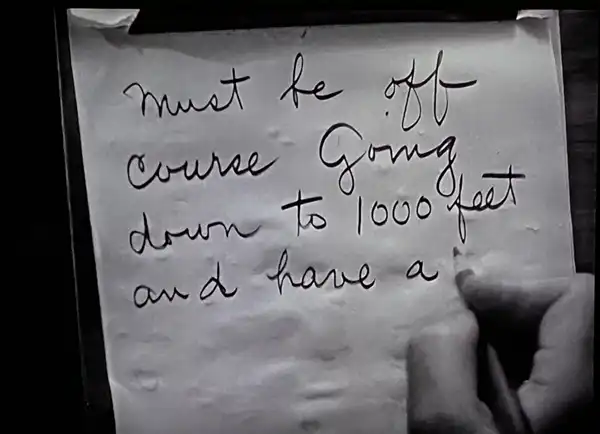 Must be off
course Going
down to 1000 feet
and have a